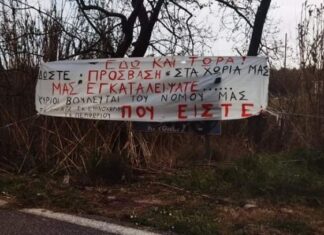 ΕΔΩ ΚΑΙ ΤΩΡΑ!
ΔΩΣΤΕ ΠΡΟΣΒΑΣΗ ΣΤΑ ΧΩΡΙΑ ΜΑΣ
ΜΑΣ ΕΓΚΑΤΑΛΕΙΨΑΤΕ......
ΚΥΡΙΟΙ ΒΟΥΛΕΥΤΑΙ ΤΟΥ ΝΟΜΟΥ ΜΑΣ
ΠΟΥ ΕΙΣΤΕ;